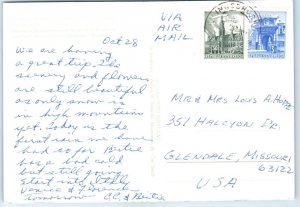 Oct 28
We are having
a great trip. The
scenery and flowers
are still beautiful
as only snow is
in high mountains
yet. Today is the
first rain we have
had so far Bertie
has a bad cold
but still going
start into Italy
Venice & Florence
tomorrow C.C. & Bertie
VIA
AIR
MAIL
Mr & Mrs Louis A. Hope
351 Halcyon Dr.
Glendale, Missouri
63122
USA